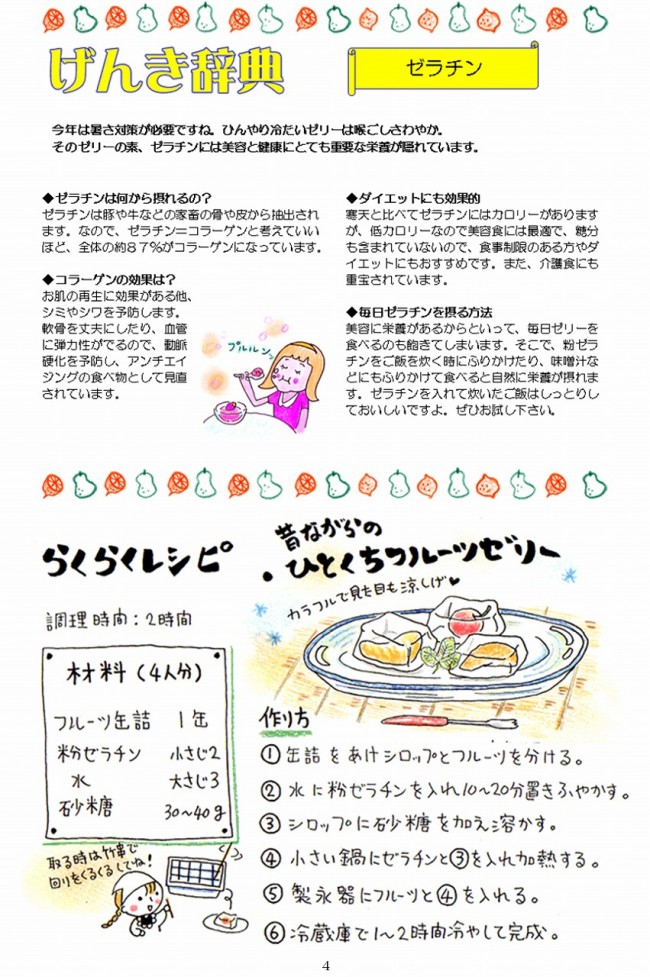 げんき辞典
ゼラチン
今年は暑さ対策が必要ですね。ひんやり冷たいゼリーは喉ごしさわやか。
そのゼリーの素、ゼラチンには美容と健康にとても重要な栄養が隠れています。
◆ゼラチンは何から摂れるの？
ゼラチンは豚や牛などの家畜の骨や皮から抽出され
ます。なので、ゼラチン＝コラーゲンと考えていい
ほど、全体の約８７％がコラーゲンになっています。
◆コラーゲンの効果は？
お肌の再生に効果がある他、
シミやシワを予防します。
軟骨を丈夫にしたり、血管
に弾力性がでるので、動脈
硬化を予防し、アンチエイ
ジングの食べ物として見直
されています。
プルルン
◆ダイエットにも効果的
寒天と比べてゼラチンにはカロリーがあります
が、低カロリーなので美容食には最適で、糖分
も含まれていないので、食事制限のある方やダ
イエットにもおすすめです。また、介護食にも
重宝されています。
◆毎日ゼラチンを摂る方法
美容に栄養があるからといって、毎日ゼリーを
食べるのも飽きてしまいます。そこで、粉ゼラ
チンをご飯を炊く時にふりかけたり、味噌汁な
どにもふりかけて食べると自然に栄養が摂れま
す。ゼラチンを入れて炊いたご飯はしっとりし
ておいしいですよ。ぜひお試し下さい。
らくらくレシピ
昔ながらの
・ひとくちフルーツゼリー
カラフルで見た目も涼しげ♥
調理時間：2時間
材料（4人分）
フルーツ缶詰 1缶
粉ゼラチン 小さじ2
水 大さじ3
砂糖 30～40g
取る時は竹串で
回りをくるくるしてね！
作り方
①缶詰をあけシロップとフルーツを分ける。
②水に粉ゼラチンを入れ10～20分置きふやかす。
③シロップに砂糖を加え溶かす。
④小さい鍋にゼラチンと③を入れ加熱する。
⑤製氷器にフルーツと④を入れる。
⑥冷蔵庫で1～2時間冷やして完成。
4